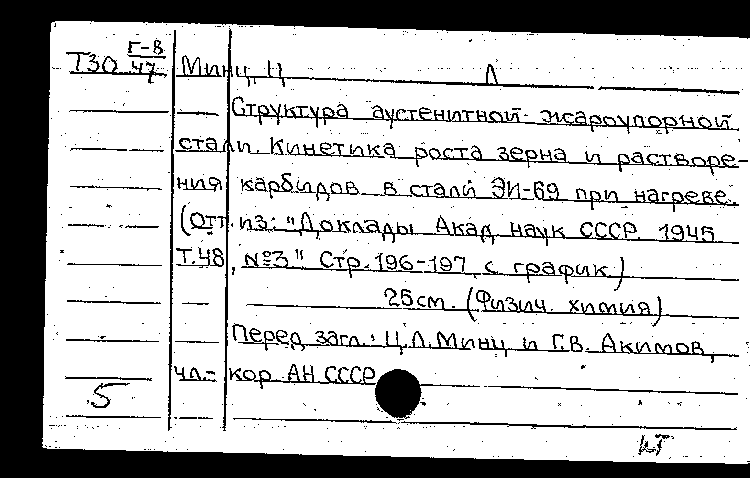 Т30 Г-8
47 Минц Ц Л
Структура аустенитной жароупорной
стали. Кинетика роста зерна и растворе-
ния карбидов в стали ЭИ-69 при нагреве.
(Отт. из: "Доклады Акад. наук СССР. 1945
Т.48, №3" Стр. 196-197 с график.)
25см. (Физич. химия)
Перед загл.: Ц.Л. Минц и Г.В. Акимов,
чл.-кор АН СССР
5
КТ